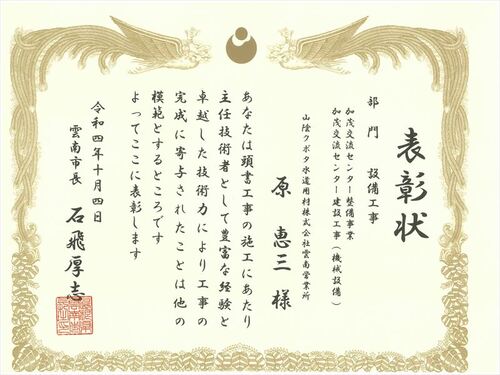 表彰状
部門　設備工事
加茂交流センター整備事業
加茂交流センター建設工事（機械設備）
山陰クボタ水道用材株式会社雲南営業所
原　恵三　様
あなたは頭書工事の施工にあたり
主任技術者として豊富な経験と
卓越した技術力により工事の
完成に寄与されたことは他の
模範とするところです
よってここに表彰します
令和四年十月四日
雲南市長　石飛厚志